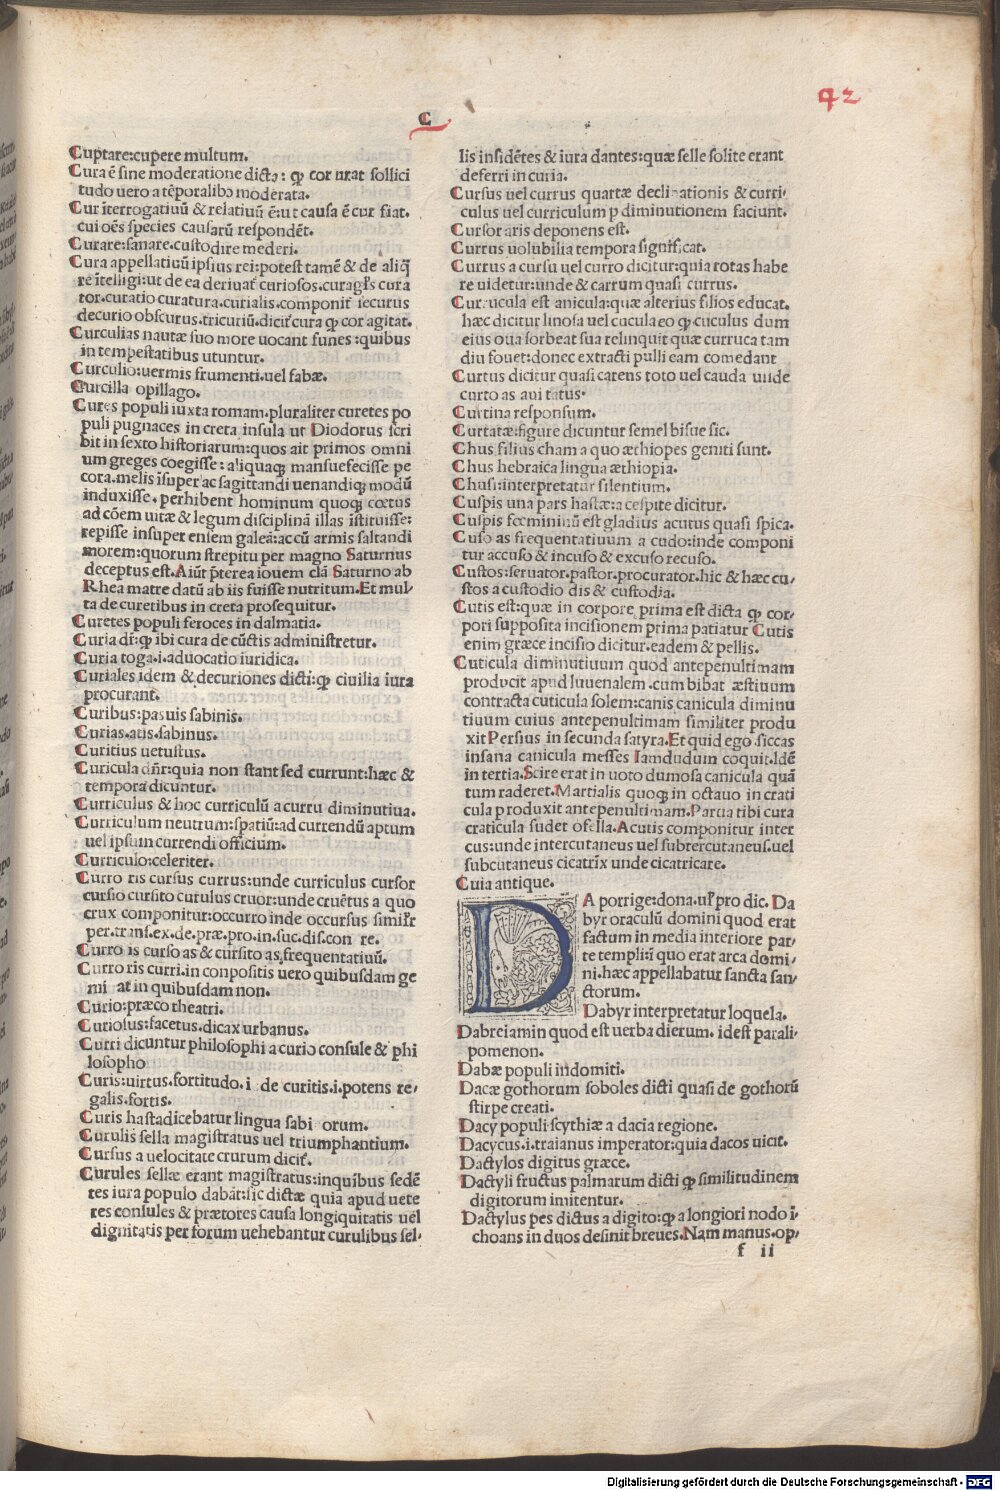 42
C
Cuptare:cupere multum.
Cura ē sine moderatione dicta: ꝙ cor urat sollici
tudo uero a tēporalibꝰ moderata.
Cur īterrogatiuū & relatiuū ē:ut causa ē cur fiat.
cui oēs species causarū respondēt.
Curare:sanare.custodire mederi.
Cura appellatiuū ipsius rei:potest tamē & de aliq̄
re ītelligi:ut de ea deriuat᷑ curiosos.curagl̓s cura
tor.curatio curatura.curialis.componit᷑ iecurus
decurio obscurus.tricuriū.dicit᷑ cura ꝙ cor agitat.
Curculias nautæ suo more uocant funes:quibus
in tempestatibus utuntur.
Curculio:uermis frumenti.uel fabæ.
Curcilla opillago.
Cures populi iuxta romam.pluraliter curetes po
puli pugnaces in creta insula ut Diodorus scri
bit in sexto historiarum:quos ait primos omni
um greges coegisse: aliquaqꝫ mansuefecisse pe
cora.melis īsuper ac sagittandi uenandiqꝫ modū
induxisse. perhibent hominum quoqꝫ cœtus
ad cōem uitæ & legum disciplinā illas īstituisse:
repisse insuper ensem galeā:ac cū armis saltandi
morem:quorum strepitu per magno Saturnus
deceptus est.Aiūt p̄terea iouem clā Saturno ab
Rhea matre datū ab iis fuisse nutritum.Et mul-
ta de curetibus in creta prosequitur.
Curetes populi feroces in dalmatia.
Curia dr̄:ꝙ ibi cura de cūctis administretur.
Curia toga.i.aduocatio iuridica.
Curiales idem & decuriones dicti:ꝙ ciuilia iura
procurant.
Curibus:pasuis sabinis.
Curias.atis.sabinus.
Curitius uetustus.
Curicula dn̄r:quia non stant sed currunt:hæc &
tempora dicuntur.
Curriculus & hoc curriculū a curru diminutiua.
Curriculum neutrum:spatiū:ad currendū aptum
uel ipsum currendi officium.
Curriculo:celeriter.
Curro ris cursus currus:unde curriculus cursor
cursio cursito curulus cruor:unde cruētus a quo
crux componitur:occurro inde occursus similr̄
per.trans.ex.de.præ.pro.in.suc.dis.con re.
Curro is curso as & cursito as.frequentatiuū.
Curro ris curri.in conpositis uero quibusdam ge
mi at in quibusdam non.
Curio:præco theatri.
Curiosus:facetus.dicax urbanus.
Curri dicuntur philosophi a curio consule & phi
losopho
Curis:uirtus.fortitudo.i de curitis.i.potens re-
galis.fortis.
Curis hastadicebatur lingua sabi orum.
Curulis sella magistratus uel triumphantium.
Cursus a uelocitate crurum dicit᷑.
Curules sellæ erant magistratus:inquibus sedē
tes iura populo dabāt:sic dictæ quia apud uete
res consules & prætores causa longiquitatis uel
dignitatis per forum uehebantur curulibus sel-
lis insidētes & iura dantes:quæ selle solite erant
deferri in curia.
Cursus uel currus quartæ declinationis & curri-
culus uel curriculum p diminutionem faciunt.
Cursor aris deponens est.
Currus uolubilia tempora significat.
Currus a cursu uel curro dicitur:quia rotas habe
re uidetur:unde & carrum quasi currus.
Curuucula est anicula:quæ alterius filios educat.
hæc dicitur linosa uel cucula eo ꝙ cuculus dum
eius oua sorbeat sua relinquit quæ curruca tam
diu fouet:donec extracti pulli eam comedant
Curtus dicitur quasi carens toto uel cauda unde
curto as aui tatus.
Curtina responsum.
Curtatæ:figure dicuntur semel bisue sic.
Chus filius cham a quo æthiopes geniti sunt.
Chus hebraica lingua æthiopia.
Chusi:interpretatur silentium.
Cuspis una pars hastæ:a cespite dicitur.
Cuspis fœmininū est gladius acutus quasi spica.
Cuso as frequentatiuum a cudo:inde componi
tur accuso & incuso & excuso recuso.
Custos:seruator.pastor.procurator.hic & hæc cu-
stos a custodio dis & custodia.
Cutis est:quæ in corpore prima est dicta ꝙ cor-
pori supposita incisionem prima patiatur Cutis
enim græce incisio dicitur.eadem & pellis.
Cuticula diminutiuum quod antepenultimam
producit apud Iuuenalem.cum bibat æstiuum
contracta cuticula solem:canis canicula diminu
tiuum cuius antepenultimam similiter produ
xit Persius in secunda satyra.Et quid ego siccas
insana canicula messes Iamdudum coquit.Idē
in tertia.Scire erat in uoto dumosa canicula quā
tum raderet.Martialis quoqꝫ in octauo in crati
cula produxit antepenultimam.Parua tibi cura
craticula sudet ofella.Acutis componitur inter
cus:unde intercutaneus uel subtercutaneus.uel
subcutaneus cicatrix unde cicatricare.
Cuia antique.
DA porrige:dona.ul̓ pro dic. Da
byr oraculū domini quod erat
factum in media interiore par-
te templi:ī quo erat arca domi-
ni.hæc appellabatur sancta san-
ctorum.
Dabyr interpretatur loquela.
Dabreiamin quod est uerba dierum. idest parali-
pomenon.
Dabæ populi indomiti.
Dacæ gothorum soboles dicti quasi de gothorū
stirpe creati.
Dacy populi scythiæ a dacia regione.
Dacycus.i.traianus imperator:quia dacos uicit.
Dactylos digitus græce.
Dactyli fructus palmarum dicti ꝙ similitudinem
digitorum imitentur.
Dactylus pes dictus a digito:ꝙ a longiori nodo ī-
choans in duos desinit breues.Nam manus.op-
f ii
Digitalisierung gefördert durch die Deutsche Forschungsgemeinschaft - DFG